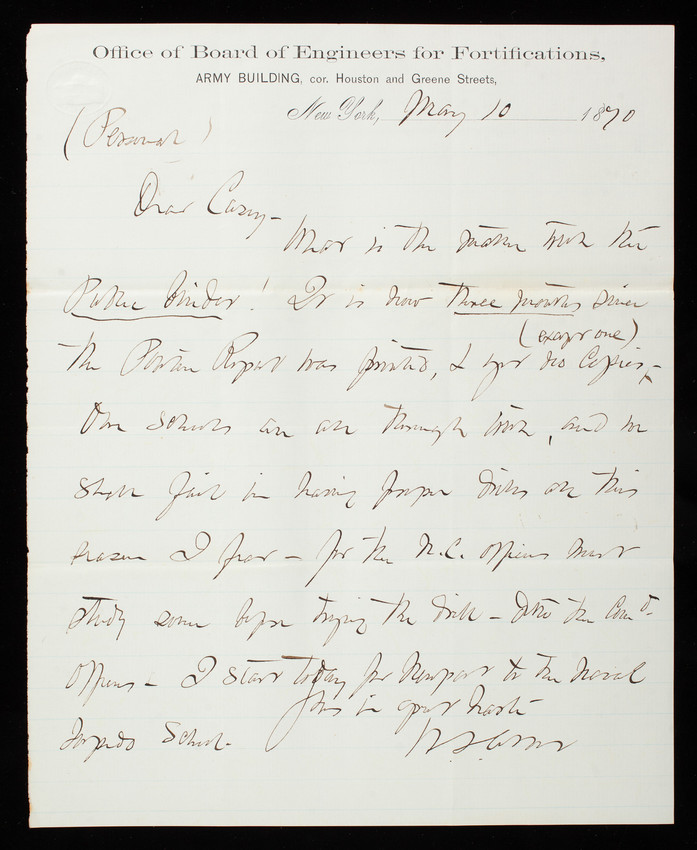 Office of Board of Engineers for Fortifications,
ARMY BUILDING, cor. Houston and Greene Streets,
New York, May 10 1870
(Personal)
Dear Casey -
What is the matter with the
Public binder! It is now three months since
(except one)
the Pontoon Report was printed, & yet no Copies -
The schools are all through with, and we
shall fail in having proper drills all this
season I fear - for the N.C. Officers must
study some before trying the drill - ditto the Com'd
Officers - I start today for Newport to the Naval
Yours in great haste
Torpedo School.